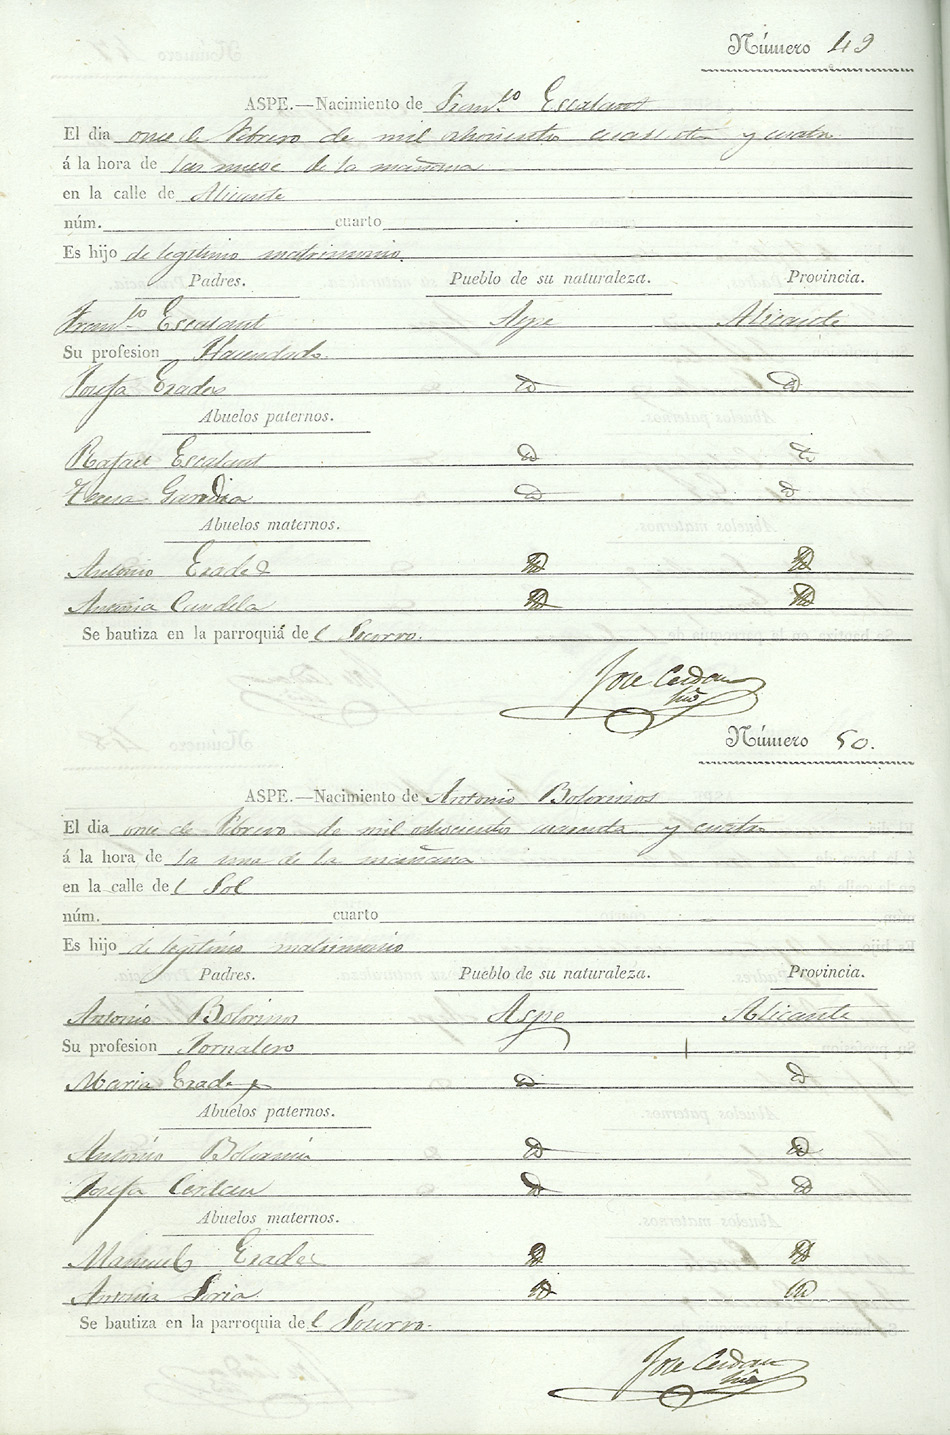 Número 49
ASPE.—Nacimiento de Fran.co Escalant
El dia once de Febrero de mil ochocientos cuarenta y cuatro
á la hora de las nueve de la mañana
en la calle de Alicante
núm. cuarto
Es hijo de legitimo matrimonio.
Padres. Pueblo de su naturaleza. Provincia.
Fran.co Escalant Aspe Alicante
Su profesion Hacendado
Josefa Erades Id Id
Abuelos paternos.
Rafael Escalant Id Id
Teresa Id Id
Abuelos maternos.
Antonio Erades Id Id
Antonia Candela Id Id
Se bautiza en la parroquia del Socorro.
Jose Cerdan
Srio
Número 50.
ASPE.—Nacimiento de Antonio Botorinos
El dia once de Febrero de mil ochocientos cuarenta y cuatro
á la hora de la una de la mañana
en la calle del Sol
núm. cuarto
Es hijo de legitimo matrimonio
Padres. Pueblo de su naturaleza. Provincia.
Antonio Botorinos Aspe Alicante
Su profesion Jornalero
Maria Erades Id Id
Abuelos paternos.
Antonio Id Id
Josefa Id Id
Abuelos maternos.
Manuel Erades Id Id
Antonia Soria Id Id
Se bautiza en la parroquia del Socorro.
Jose Cerdan
Srio